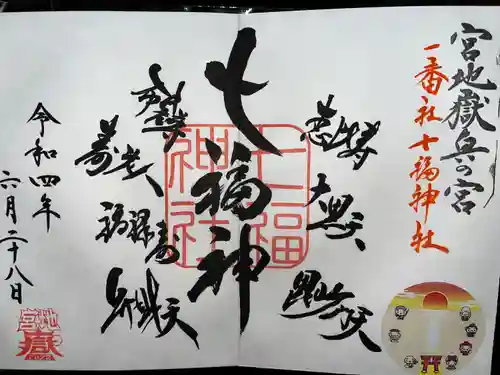 宮地嶽奥の宮
一番社七福神社
恵比寿
大黒天
毘沙門天
七福神
七福
神社
布袋尊
寿老人
福禄寿
弁財天
令和四年
六月二十八日
宮地
嶽